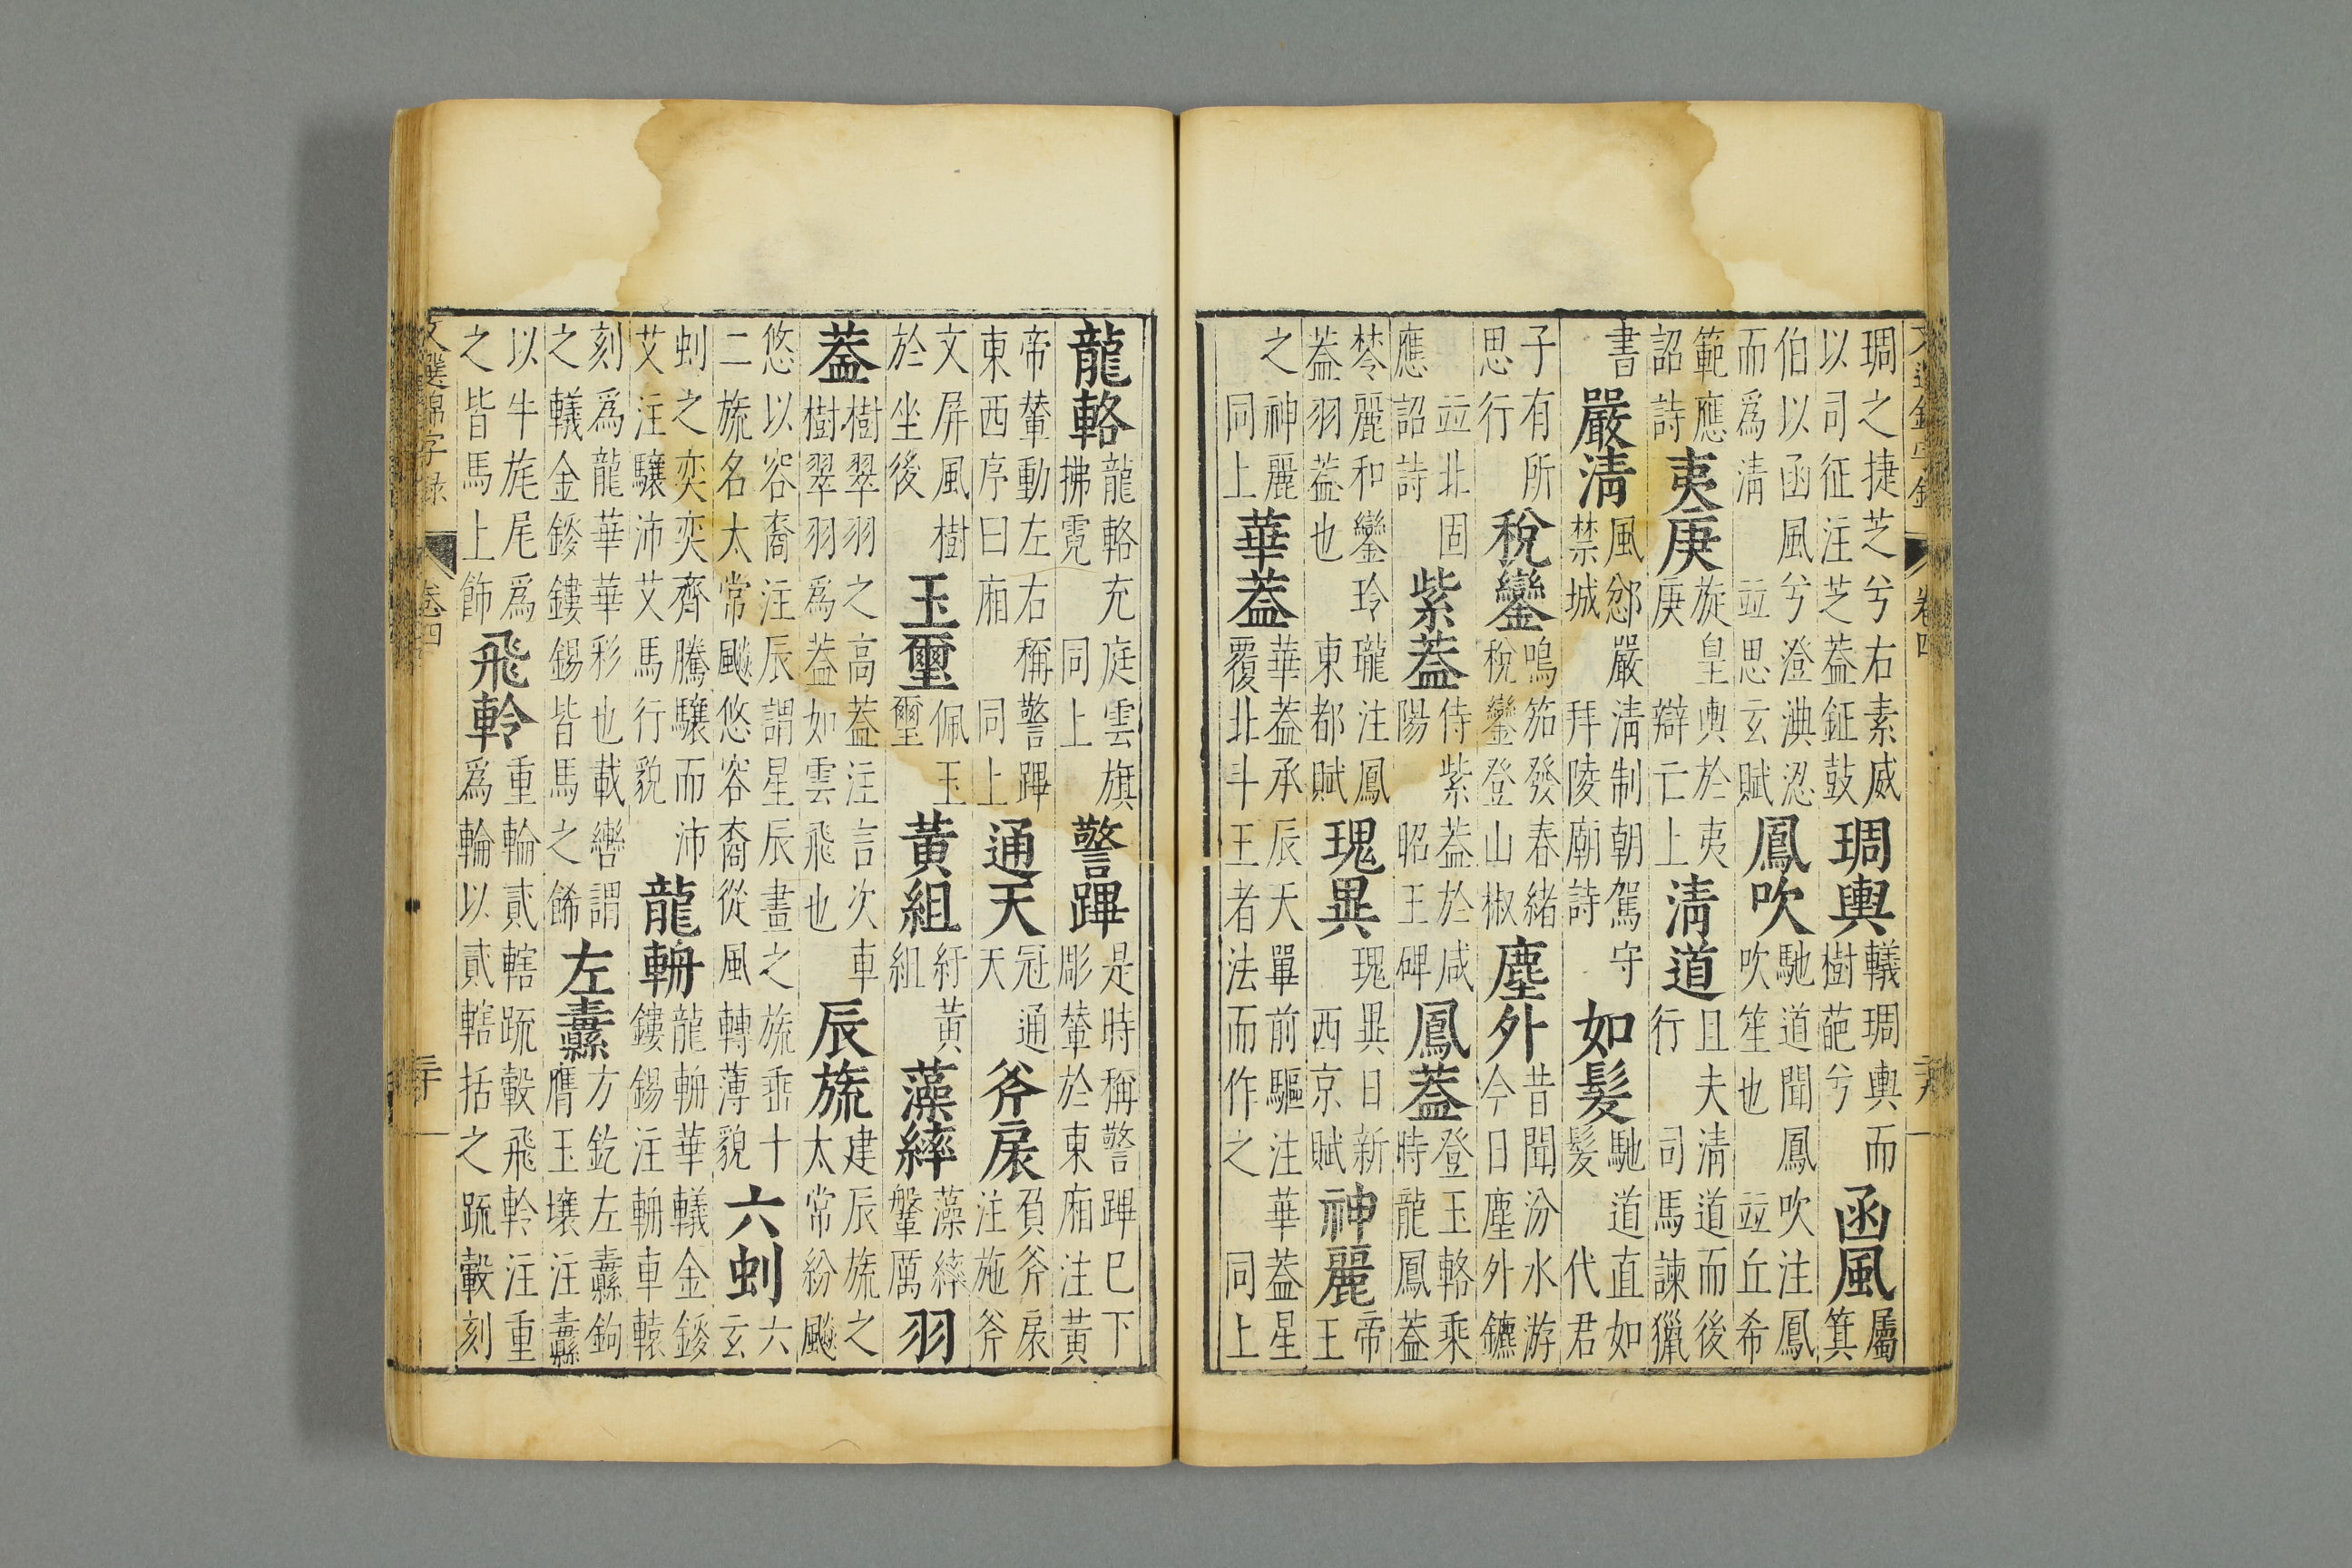 文選錦字錄 卷四 二十九
琱之捷芝兮右素威以司征注芝葢鉦鼓琱輿轙琱輿而樹葩兮函風屬箕
伯以函風兮澄淟涊而爲清 竝思玄賦鳳吹馳道聞鳳吹注鳳吹笙也 竝丘希
範應詔詩夷庚旋皇輿於夷庚 辯亡上清道且夫清道而後行 司馬諫獵
書嚴清風愆嚴清制朝駕守禁城 拜陵廟詩如髮馳道直如髮 代君
子有所思行稅鑾鳴笳發春緒稅鑾登山椒塵外昔聞汾水游今日塵外鑣
竝北固應詔詩紫葢侍紫葢於咸陽 昭王碑鳳葢登玉輅乘時龍鳳葢
棽麗和鑾玲瓏注鳳葢羽葢也 東都賦瑰異瑰異日新 西京賦神麗帝王
之神麗 同上華葢華葢承辰天畢前驅注華葢星覆北斗王者法而作之 同上
龍輅龍輅充庭雲旗拂霓 同上警蹕是時稱警蹕已下彫輦於東廂注黃
帝輦動左右稱警蹕東西序曰廂 同上通天冠通天斧扆負斧扆注施斧
文屏風樹於坐後玉璽佩玉璽黃組紆黃組藻繂藻繂鞶厲羽
葢樹翠羽之高葢注言次車樹翠羽爲葢如雲飛也辰旒建辰旒之太常紛飈
悠以容裔注辰謂星辰畫之旒垂十二旒名太常飈悠容裔從風轉薄貌六虯六玄
虯之奕奕齊騰驤而沛艾注驤沛艾馬行貌龍輈龍輈華轙金鋄鏤錫注輈車轅
刻爲龍華華彩也載轡謂之轙金鋄鏤錫皆馬之餙左纛方釳左纛鉤膺玉瓖注纛
以牛旄尾爲之皆馬上飾飛軨重輪貳轄疏轂飛軨注重爲輪以貳轄括之疏轂刻
文選錦字錄 卷四 三十